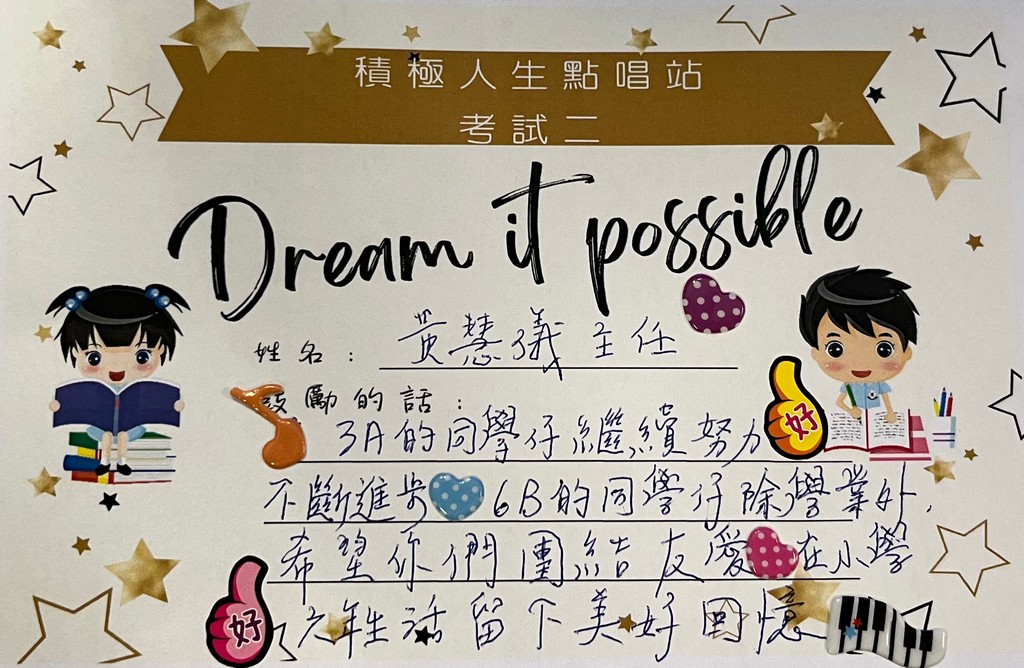 積極人生點唱站
考試二
Dream it possible
姓名：黃慧儀主任
鼓勵的話：
3A的同學仔繼續努力
好
不斷進步 6B的同學仔除學業外，
希望你們團結友愛 在小學
六年生活留下美好回憶
好